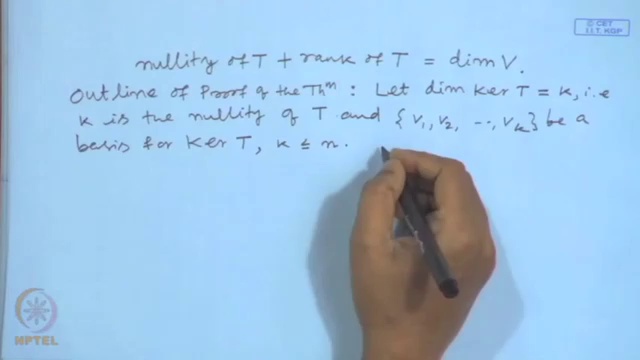 © CET
I.I.T. KGP
nullity of T + rank of T = dim V.
Outline of Proof of the Thm : Let dim Ker T = k, i.e
k is the nullity of T and {v1, v2, ..., vk} be a
basis for Ker T, k ≤ n.
NPTEL